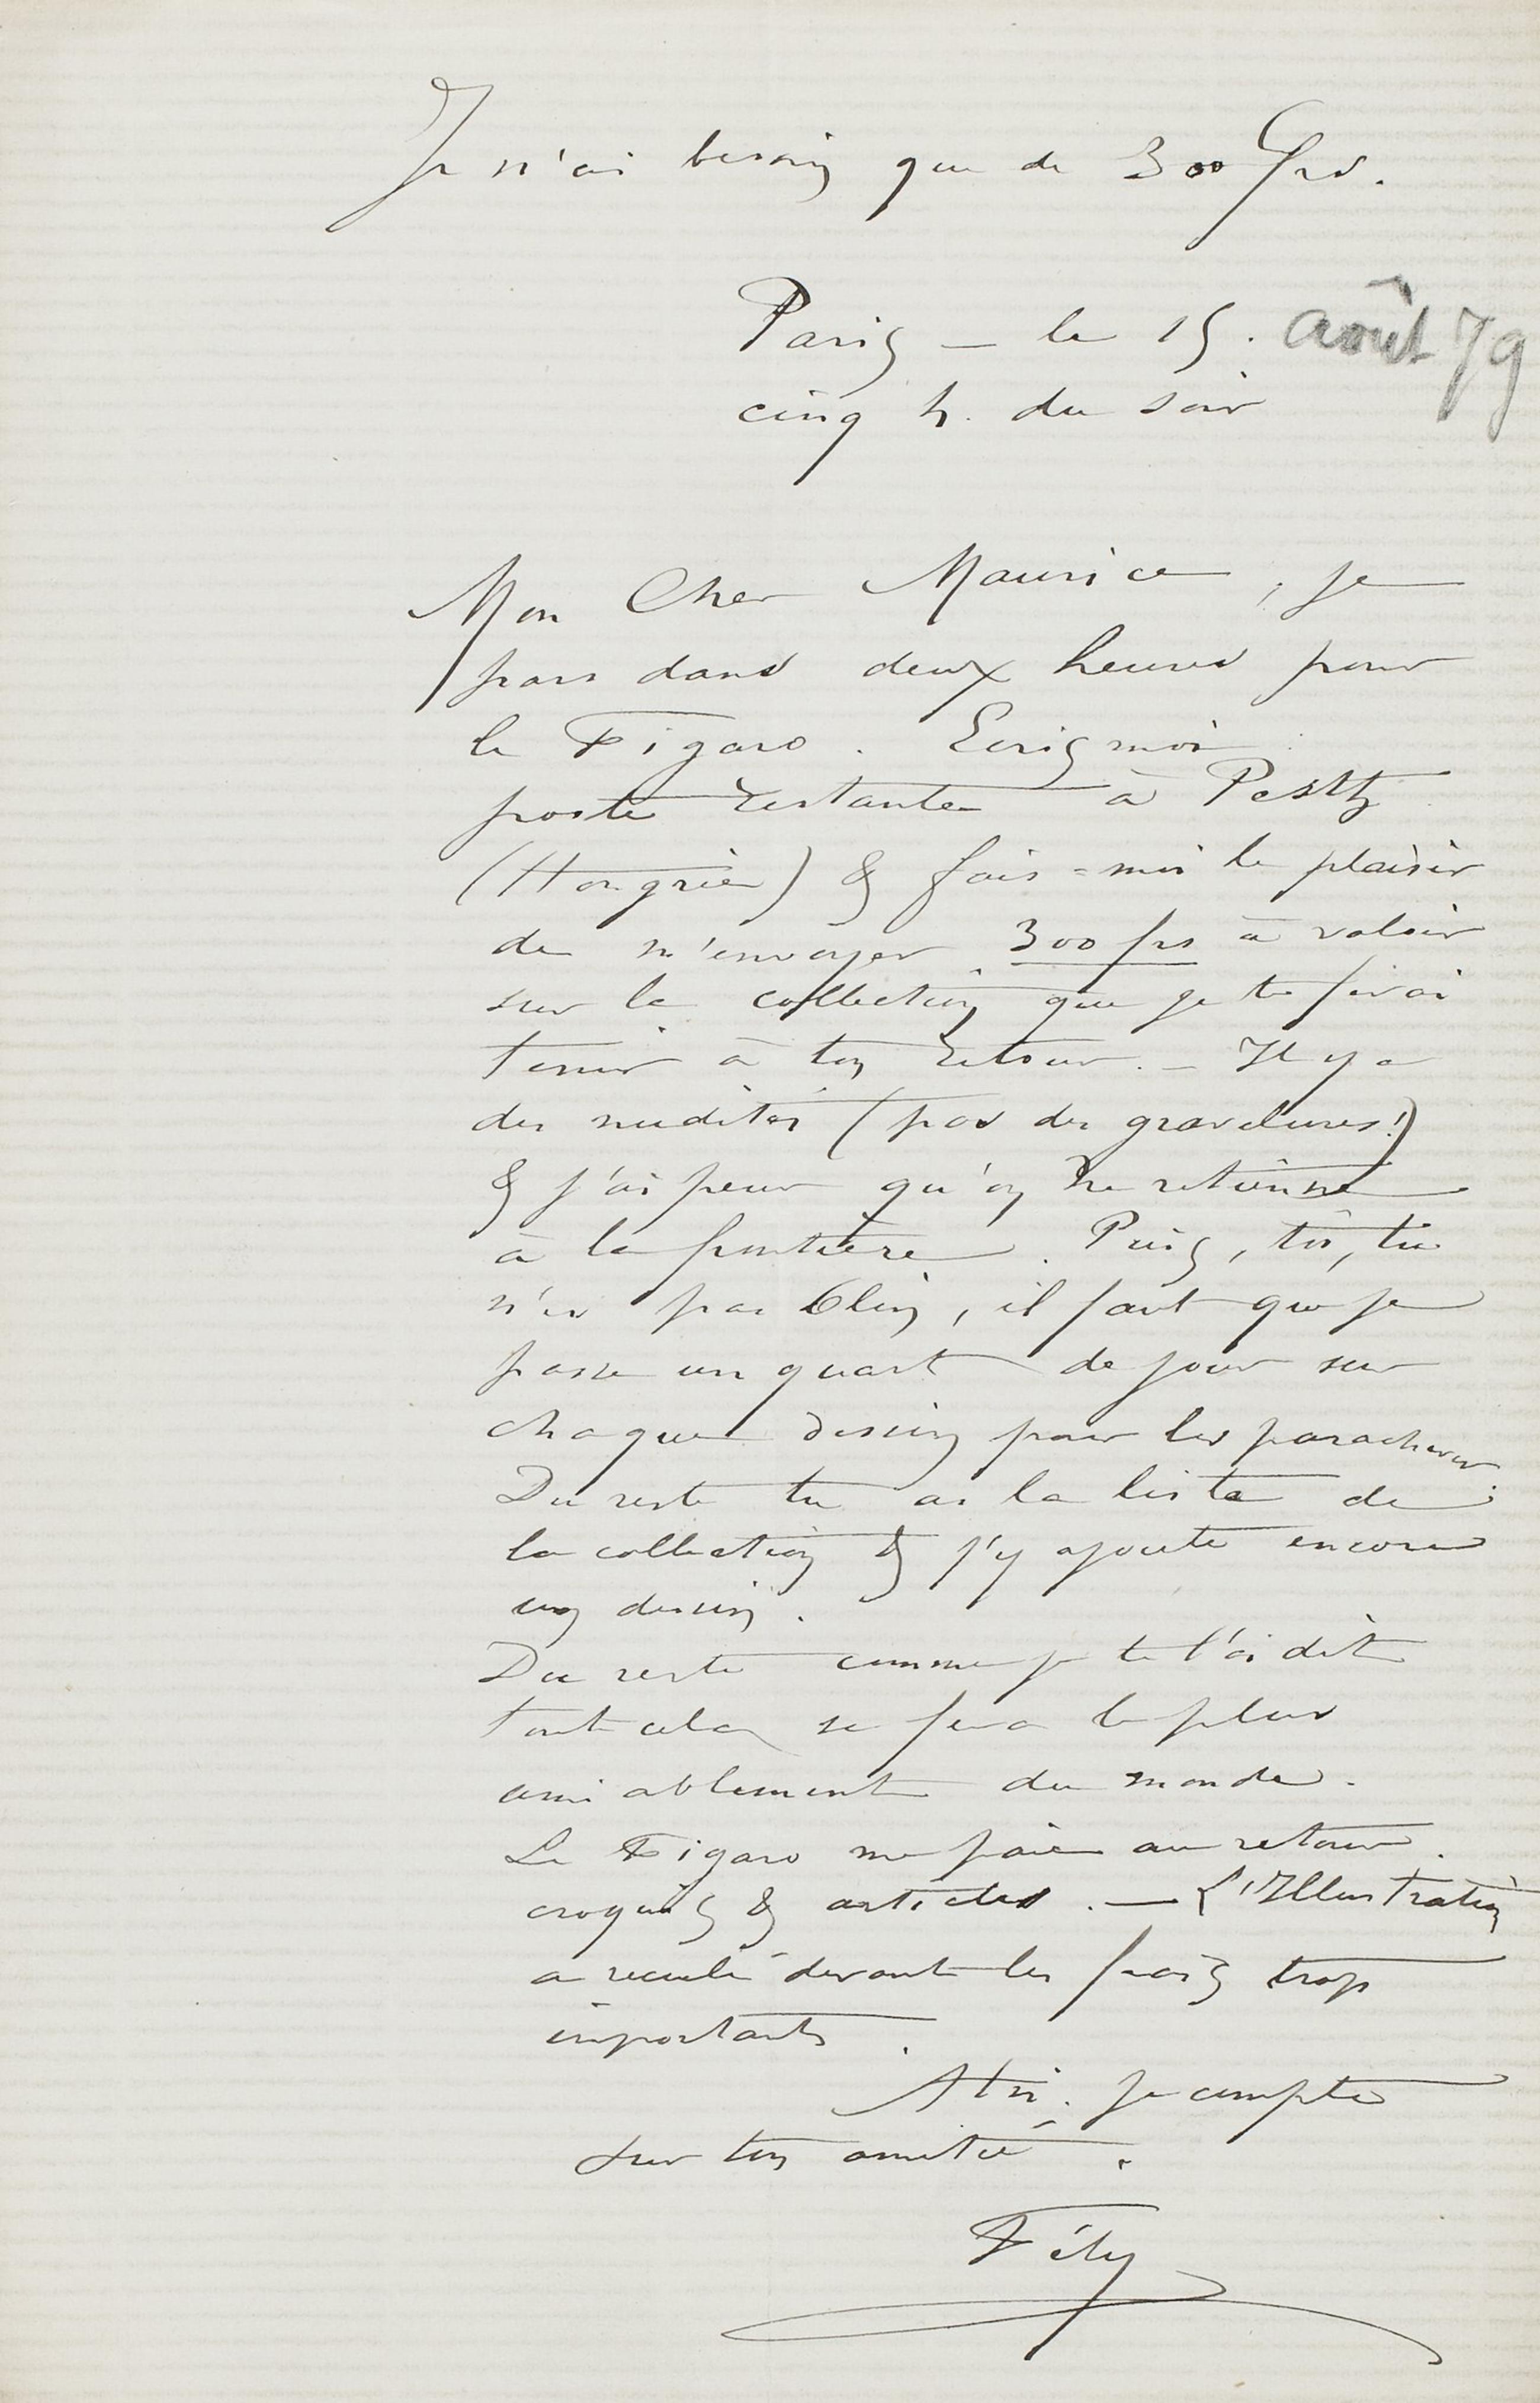 Je n'ai besoin que de 300 frs.
Paris – le 15. août 79
cinq h. du soir
Mon Cher Maurice, je
pars dans deux heures pour
le Figaro. Ecris moi
poste restante à Pesth
(Hongrie) & fais-moi le plaisir
de m'envoyer 300 frs à valoir
sur la collection que je te ferai
tenir à ton retour. – Il y a
des nudités (pas des gravelures!)
& j'ai peur qu'on ne retienne
à la frontière. Puis, toi, tu
n'es pas Blin, il faut que je
passe un quart de jour sur
chaque dessin pour les parachever.
Du reste tu as la liste de
la collection & j'y ajoute encore
un dessin.
Du reste comme je te l'ai dit
tout cela se fera le plus
amiablement du monde.
Le Figaro me paie au retour.
croquis & articles. — L'Illustration
a reculé devant les frais trop
importants.
A toi. Je compte
sur ton amitié.
Fély